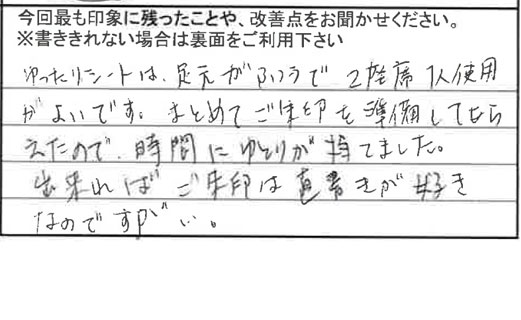 今回最も印象に残ったことや、改善点をお聞かせください。
※書ききれない場合は裏面をご利用下さい
ゆったりシートは、足元が で 2座席 1人使用
がよいです。まとめてご朱印を準備してもら
えたので、時間にゆとりが持てました。
出来ればご朱印は直書きが好き
なのですが